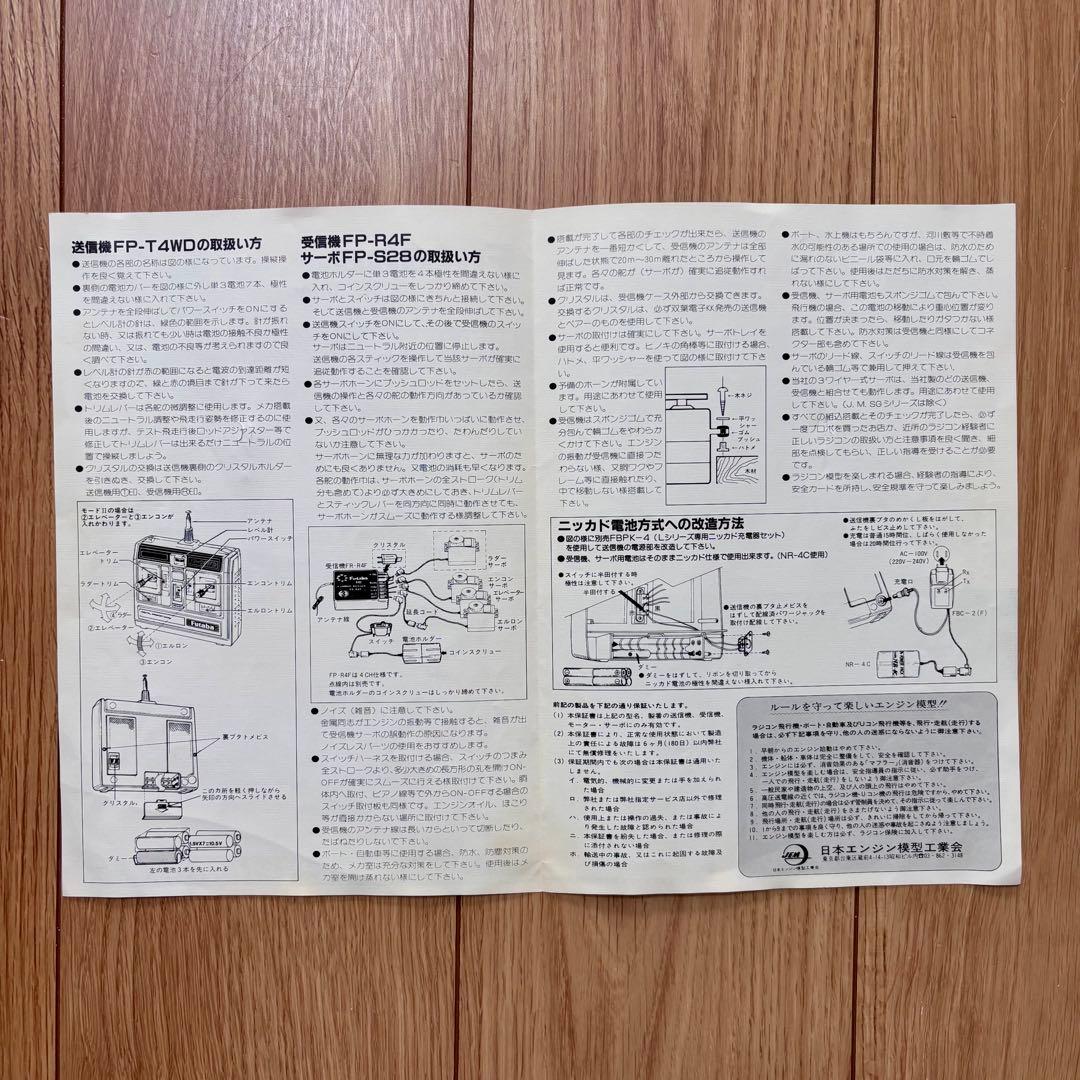 送信機FP-T4WDの取扱い方
●送信機の各部の名称は図の様になっています。操縦操
作を良く覚えて下さい。
●裏側の電池カバーを図の様に外し単3電池7本、極性
を間違えない様に入れて下さい。
●アンテナを全段伸ばしてパワースイッチをONにする
とレベル計の針は、緑色の範囲を示します。針が振れ
ない時、又は振れても少い時は電池の接触不良か極性
の間違い、又は、電池の不良等が考えられますので良
く調べて下さい。
●レベル計の針が赤の範囲になると電波の到達距離が短
くなりますので、緑と赤の境目まで針が下って来たら
電池を交換して下さい。
●トリムレバーは各舵の微調整に使用します。メカ搭載
後のニュートラル調整や飛走行姿勢を修正するのに使
用しますが、テスト飛走行後ロットアジャスター等で
修正してトリムレバーは出来るだけニュートラルの位
置で操縦しましょう。
●クリスタルの交換は送信機裏側のクリスタルホルダー
を引きぬき、交換して下さい。
送信機用Ⓣ印、受信機用Ⓡ印。
モードIIの場合は
②エレベーターと③エンコンが
入れかわります。
アンテナ
レベル計
パワースイッチ
エレベーター
トリム
ラダートリム
エンコントリム
エルロントリム
④ラダー
②エレベーター
①エルロン
③エンコン
Futaba
裏ブタトメビス
このカ所を軽く押しながら
矢印の方向へスライドさせる
クリスタル
1.5V×7=10.5V
ダミー
左の電池3本を先に入れる
受信機FP-R4F
サーボFP-S28の取扱い方
●電池ホルダーに単3電池を4本極性を間違えない様に
入れ、コインスクリューをしっかり締めて下さい。
●サーボとスイッチは図の様にきちんと接続して下さい。
そして送信機と受信機のアンテナを全段伸ばして下さい。
●送信機スイッチをONにして、その後で受信機のスイッ
チをONにして下さい。
サーボはニュートラル附近の位置に停止します。
送信機の各スティックを操作して当該サーボが確実に
追従動作することを確認して下さい。
●各サーボホーンにプッシュロッドをセットしたら、送
信機の操作と各々の舵の動作方向があっているか確認
して下さい。
●又、各々のサーボホーンを動作巾いっぱいに動作させ、
プッシュロッドがひっかかったり、たわんだりしてい
ないか注意して下さい。
サーボホーンに無理な力が加わりますと、サーボのた
めにも良くありません。又電池の消耗も早くなります。
各舵の動作は、サーボホーンの全ストローク(トリム
分も含めて)より必ず大きめにしておき、トリムレバー
とスティックレバーを同方向に同時に動作させても、
サーボホーンがスムーズに動作する様調整して下さい。
クリスタル
受信機FR-R4F
Futaba
ラダー
サーボ
エンコン
サーボ
エレベーター
サーボ
エルロン
サーボ
延長コード
アンテナ線
スイッチ
電池ホルダー
コインスクリュー
FP-R4Fは4CH仕様です。
点線内は別売です。
電池ホルダーのコインスクリューはしっかり締めて下さい。
●ノイズ(雑音)に注意して下さい。
金属同志がエンジンの振動等で接触すると、雑音が出
て受信機やサーボの誤動作の原因になります。
ノイズレスパーツの使用をおすすめします。
●スイッチハーネスを取付ける場合、スイッチのつまみ
全ストロークより、多少大きめの長方形の孔を開けON-
OFFが確実にスムーズに行える様取付けて下さい。胴
体内へ取付、ピアノ線等で外からON-OFFする場合の
スイッチ取付板も同様です。エンジンオイル、ほこり
等が直接かからない場所に取付けて下さい。
●受信機のアンテナ線は長いからといって切断したり、
たばねたりしないで下さい。
●ボート・自動車等に使用する場合、防水、防塵対策の
ため、メカ室は充分な対策をして下さい。使用後はメ
カ室を開け蒸れない様にして下さい。
●搭載が完了して各部のチェックが出来たら、送信機の
アンテナを一番短かくして、受信機のアンテナは全部
伸ばした状態で20m〜30m離れたところから操作して
見ます。各々の舵が(サーボが)確実に追従動作すれ
ば正常です。
●クリスタルは、受信機ケース外部から交換できます。
交換するクリスタルは、必ず双葉電子KK発売の送信機
とペアーのものを使用して下さい。
●サーボの取付けは確実にして下さい。サーボトレイを
使用すると便利です。ヒノキの角棒等に取付ける場合、
ハトメ、平ワッシャーを使って図の様に取付けて下さ
い。
●予備のホーンが附属してい
ます。用途にあわせて使用
して下さい。
●受信機はスポンジゴムで充
分包んで輪ゴムをやわらか
くかけて下さい。エンジン
の振動が受信機に直接つた
わらない様、又胴ワクやフ
レーム等に直接触れたり、
中で移動しない様搭載して
下さい。
木ネジ
平ワッ
シャー
ゴム
ブッシュ
ハトメ
木材
●ボート、水上機はもちろんですが、河川敷等で不時着
水の可能性のある場所での使用の場合は、防水のため
に漏れのないビニール袋等に入れ、口元を輪ゴムでし
ばって下さい。使用後はただちに防水対策を解き、蒸
れない様にして下さい。
●受信機、サーボ用電池もスポンジゴムで包んで下さい。
飛行機の場合、この電池の移動により重心位置が変り
ます。位置が決まったら、移動したりガタつかない様
搭載して下さい。防水対策は受信機と同様にしてコネ
クター部も含めて下さい。
●サーボのリード線、スイッチのリード線は受信機を包
んでいる輪ゴム等で兼用して押えて下さい。
●当社の3ワイヤー式サーボは、当社製のどの送信機、
受信機と組合せても動作します。用途にあわせて使用
して下さい。(J.M.SGシリーズは除く)
●すべての組込搭載とそのチェックが完了したら、必ず
一度プロポを買ったお店か、近所のラジコン経験者に
正しいラジコンの取扱い方と注意事項を良く聞き、細
部を点検してもらい、正しい指導を受けることが必要
です。
●ラジコン模型を楽しまれる場合、経験者の指導により、
安全カードを所持し、安全規準を守って楽しみましょう。
ニッカド電池方式への改造方法
●図の様に別売FBPK-4(Lシリーズ専用ニッカド充電器セット)
を使用して送信機の電源部を改造して下さい。
●受信機、サーボ用電池はそのままニッカド仕様で使用出来ます。(NR-4C使用)
●スイッチに半田付する時
極性は注意して下さい。
半田付する
赤
黒
●送信機の裏ブタ止メビスを
はずして配線済パワージャックを
取付け配線して下さい。
ダミー
●ダミーをはずして、リボンを切り取ってから
ニッカド電池の極性を間違えない様入れて下さい。
●送信機裏ブタのめかくし板をはがして、
ふたをしビス止めして下さい。
●充電は普通15時間位、しばらく使用しなかった
場合は20時間位行って下さい。
AC-100V
(220V-240V)
充電口
Rx
Tx
FBC-2(F)
NR-4C
前記の製品を下記の通り保証いたします。
(1)本保証書は上記の型名、製番の送信機、受信機、
モーター・サーボにのみ有効です。
(2)本保証書により、正常な使用状態において製造
上の責任による故障は6ヶ月(180日)以内弊社
にて無償修理をいたします。
(3)保証期間内でも次の場合は本保証書は適用いた
しません。
イ.電気的、機械的に変更または手を加えられ
た場合
ロ.弊社または弊社指定サービス店以外で修理
された場合
ハ.使用上または操作の過失、または事故によ
り発生した故障と認められた場合
ニ.本保証書を紛失した場合、または修理の際
に添付されない場合
ホ.輸送中の事故、又はこれに起因する故障及
び損傷の場合
ルールを守って楽しいエンジン模型!!
ラジコン飛行機・ボート・自動車及びUコン飛行機等を、飛行・走航(走行)する
場合は、必ず下記事項を守り、他の人の迷惑にならないように御注意下さい。
1.早朝からのエンジン始動はやめて下さい。
2.機体・船体・車体は完全に整備をして、安全を確認して下さい。
3.エンジンには必ず、消音効果のある「マフラー」(消音器)をつけて下さい。
4.エンジン模型を楽しむ場合は、安全指導員の指示に従い、必ず助手をつけ、
一人での飛行・走航(走行)をしないよう御注意下さい。
5.一般民家や建造物の上空、及び人の頭上の飛行はやめて下さい。
6.高圧送電線の近くでは、ラジコン機・Uコン機の飛行は危険ですから、やめて下さい。
7.同時飛行・走航(走行)の場合は必ず管制員を決めて、その指示に従って楽しんで下さい。
8.他の人の飛行・走航(走行)をさまたげないよう御注意下さい。
9.飛行場所・走航(走行)場所は必ず、きれいに掃除をしてから帰って下さい。
10.1から9までの事項を良く守り、他の人の迷惑や事故を起こさぬよう注意しましょう。
11.エンジン模型を楽しむ方は必ず、ラジコン保険に加入して下さい。
JEM
日本エンジン模型工業会
日本エンジン模型工業会
東京都台東区蔵前4-14-13昭和ビル内☎03-862-3148